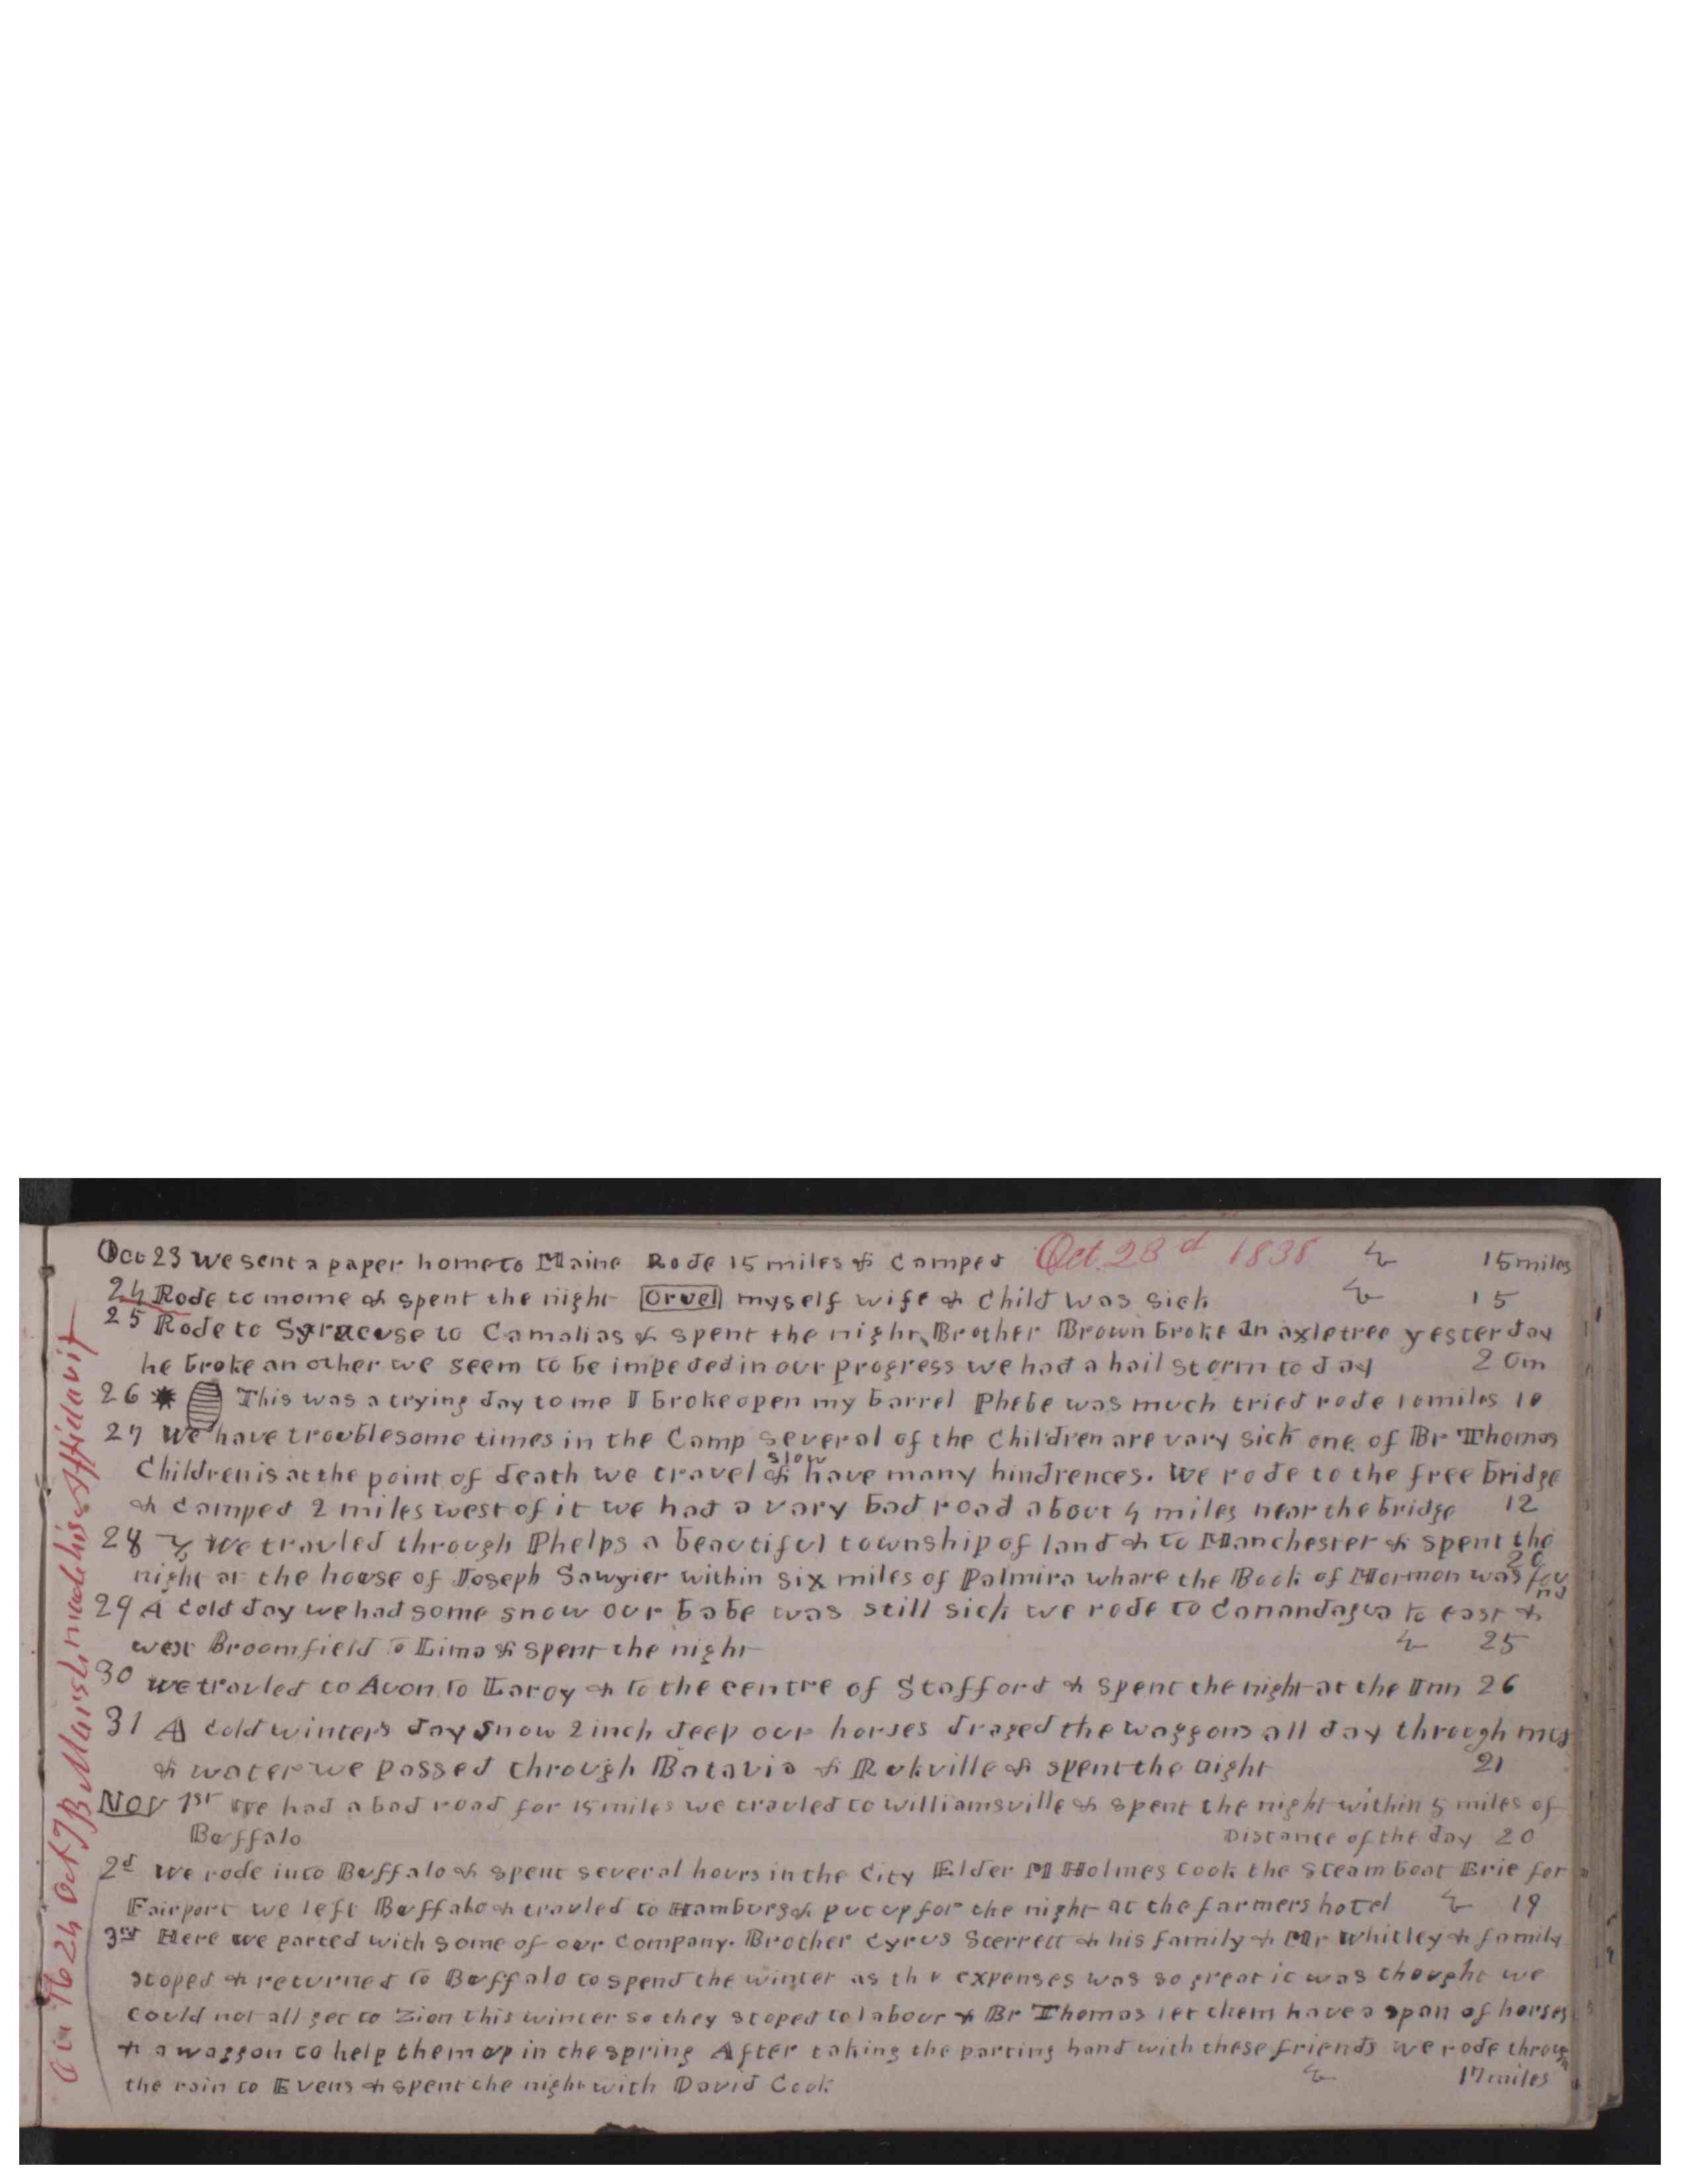 Oct 23 We sent a paper home to Maine Rode 15 miles & Camped Oct. 23d 1838 15 miles
24 Rode to mome & spent the night Oruel myself wife & Child was sick 15
25 Rode to Syracuse to Camalias & spent the night Brother Brown broke an axletree yesterday
he broke another we seem to be impeded in our progress we had a hail storm to day 20m
26 This was a trying day to me I broke open my barrel Phebe was much tried rode 10 miles 10
27 We have troublesome times in the Camp several of the Children are vary sick one of Br Thomas
slow
Children is at the point of death we travel & have many hindrences. We rode to the free bridge
& camped 2 miles west of it we had a vary bad road about 4 miles near the bridge 12
28 We travled through Phelps a beautiful township of land & to Manchester & spent the
20
night at the house of Joseph Sawyier within six miles of Palmira whare the Book of Mormon was fou
nd
29 A cold day we had some snow our babe was still sick we rode to Canandagua to east &
west Broomfield to Lima & spent the night 25
30 we travled to Avon to Laroy & to the centre of Stafford & spent the night at the Inn 26
31 A cold winters day snow 2 inch deep our horses draged the waggons all day through mud
& water we passed through Batavia & Rukville & spent the night 21
Nov 1st We had a bad road for 15 miles we travled to williamsville & spent the night within 5 miles of
Buffalo Distance of the day 20
2d We rode into Buffalo & spent several hours in the City Elder M Holmes took the Steam boat Erie for
Fairport we left Buffalo & travled to Hamburg & put up for the night at the farmers hotel 19
3rd Here we parted with some of our Company. Brother Cyrus Sterrett & his family & Mr Whitley & family
stoped & returned to Buffalo to spend the winter as the expenses was so great it was thought we
could not all get to Zion this winter so they stoped to labour & Br Thomas let them have a span of horses
& a waggon to help them up in the spring After taking the parting hand with these friends we rode through
the rain to Evens & spent the night with David Cook 17 miles
24 Oct T B Marsh made his Affidavit